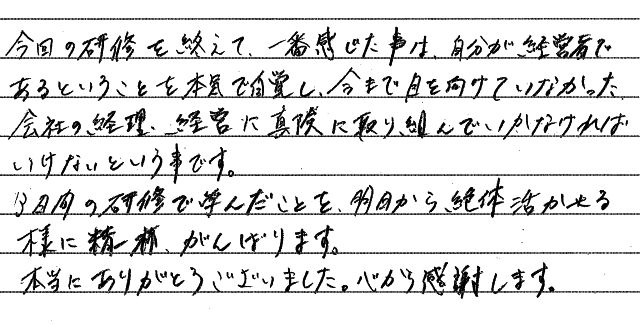 今回の研修を終えて、一番感じた事は、自分が経営者で
あるということを本気で自覚し、今まで目を向けていなかった
会社の経理、経営に真険に取り組んでいかなければ
いけないという事です。
3日間の研修で学んだことを、明日から絶体活かせる
様に精一杯、がんばります。
本当にありがとうございました。心から感謝します。